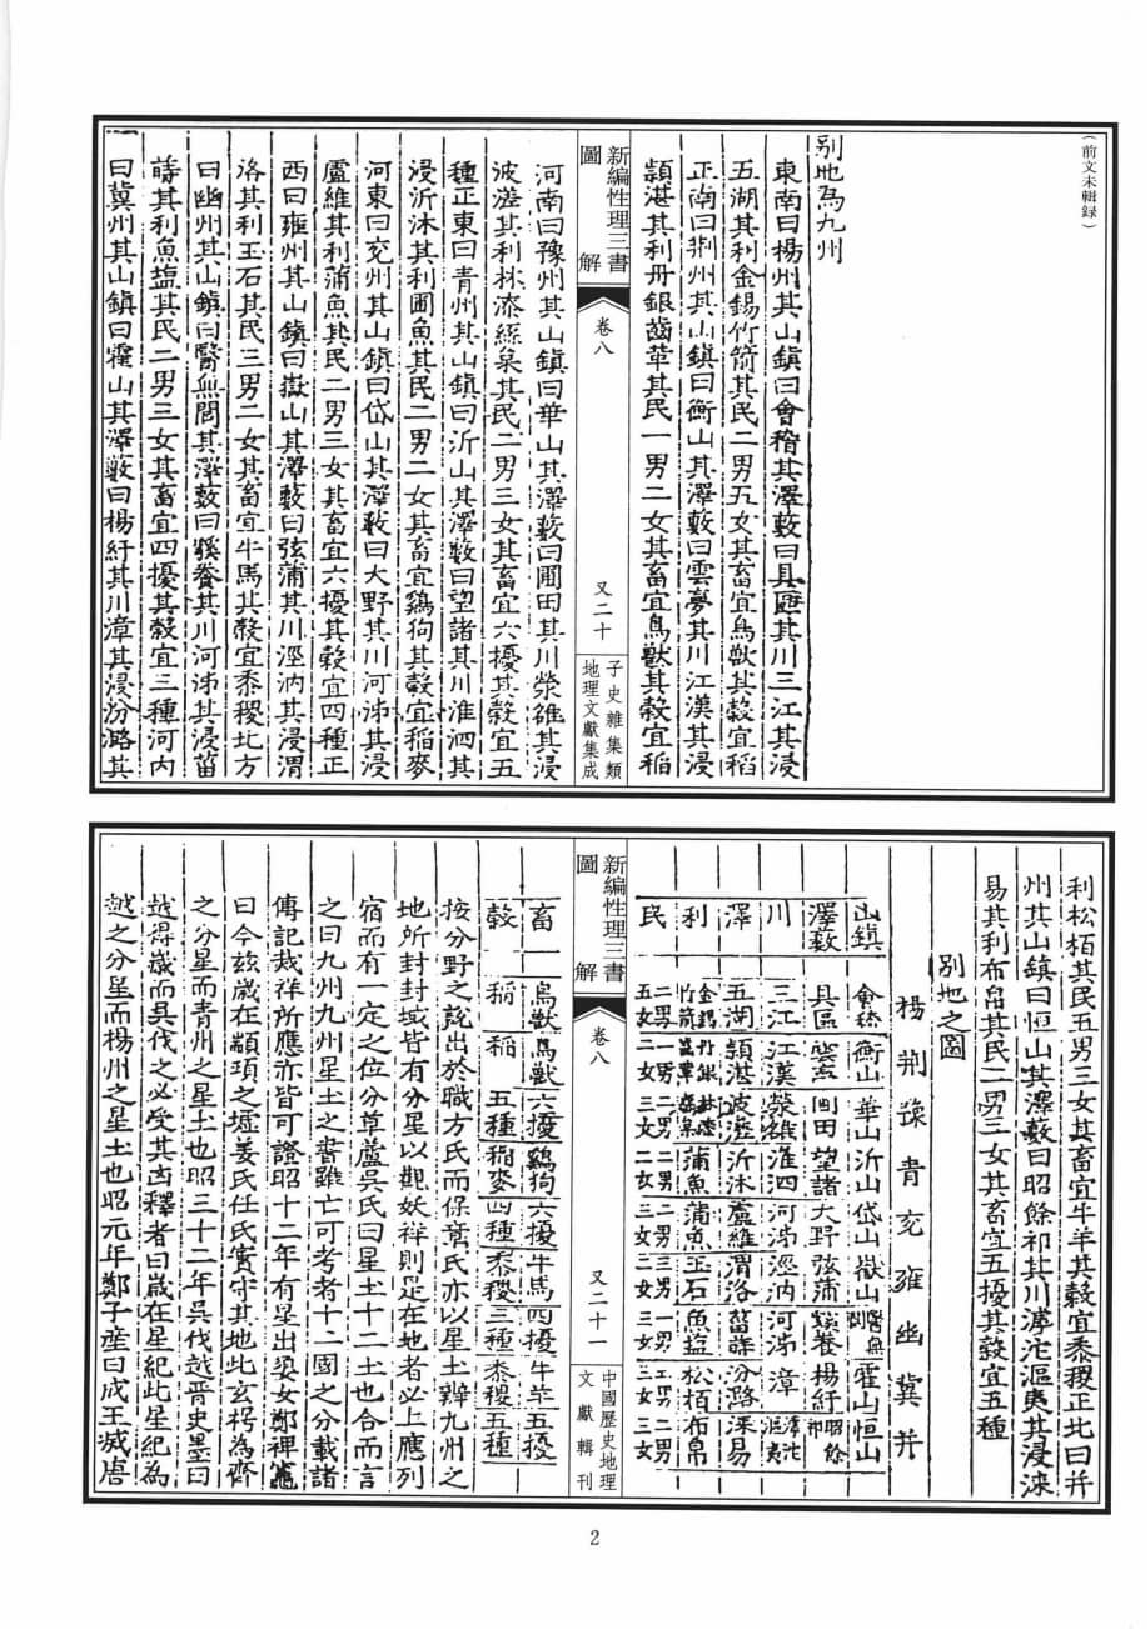 （前文未輯録）
別地為九州
東南曰楊州其山鎮曰會稽其澤藪曰具區其川三江其浸
五湖其利金錫竹箭其民二男五女其畜宜鳥獸其穀宜稻
正南曰荆州其山鎮曰衡山其澤藪曰雲夢其川江漢其浸
頴湛其利丹銀齒革其民一男二女其畜宜鳥獸其穀宜稻
新編性理三書
圖解
卷八
又二十
子史雜集類
地理文獻集成
河南曰豫州其山鎮曰華山其澤藪曰圃田其川滎雒其浸
波溠其利林漆絲枲其民二男三女其畜宜六擾其穀宜五
種正東曰青州其山鎮曰沂山其澤藪曰望諸其川淮泗其
浸沂沐其利圃魚其民二男二女其畜宜鷄狗其穀宜稻麥
河東曰兖州其山鎮曰岱山其澤藪曰大野其川河泲其浸
盧維其利蒲魚其民二男三女其畜宜六擾其穀宜四種正
西曰雍州其山鎮曰嶽山其澤藪曰弦蒲其川涇汭其浸渭
洛其利玉石其民三男二女其畜宜牛馬其穀宜黍稷北方
曰幽州其山鎮曰醫無閭其澤藪曰貕養其川河泲其浸菑
時其利魚塩其民二男三女其畜宜四擾其穀宜三種河内
曰冀州其山鎮曰霍山其澤藪曰楊紆其川漳其浸汾潞其
利松栢其民五男三女其畜宜牛羊其穀宜黍稷正北曰并
州其山鎮曰恒山其澤藪曰昭餘祁其川滹沱漚夷其浸淶
易其利布帛其民二男三女其畜宜五擾其穀宜五種
別地之圖
楊 荆 豫 青 兖 雍 幽 冀 并
山鎮 會稽 衡山 華山 沂山 岱山 嶽山 醫無閭 霍山 恒山
澤藪 具區 雲夢 圃田 望諸 大野 弦蒲 貕養 楊紆 昭餘祁
川 三江 江漢 滎雒 淮泗 河泲 涇汭 河泲 漳 滹沱漚夷
澤 五湖 頴湛 波溠 沂沐 盧維 渭洛 菑時 汾潞 淶易
利 金錫竹箭 丹銀齒革 林漆絲枲 蒲魚 蒲魚 玉石 魚塩 松栢 布帛
民 二男五女 一男二女 二男三女 二男二女 二男三女 三男二女 一男三女 五男三女 二男三女
新編性理三書
圖解
卷八
又二十一
中國歷史地理
文獻輯刊
畜 鳥獸 鳥獸 六擾 鷄狗 六擾 牛馬 四擾 牛羊 五擾
穀 稻 稻 五種 稻麥 四種 黍稷 三種 黍稷 五種
按分野之説出於職方氏而保章氏亦以星土辨九州之
地所封封域皆有分星以觀妖祥則是在地者必上應列
宿而有一定之位分草廬吳氏曰星土十二土也合而言
之曰九州九州星土之書雖亡可考者十二國之分載諸
傳記烖祥所應亦皆可證昭十二年有星出婺女鄭禆竈
曰今玆歲在顓頊之墟姜氏任氏實守其地此玄枵為齊
之分星而青州之星土也昭三十二年吳伐越晋史墨曰
越得歲而吳伐之必受其凶釋者曰歲在星紀此星紀為
越之分星而楊州之星土也昭元年鄭子產曰成王滅唐
2